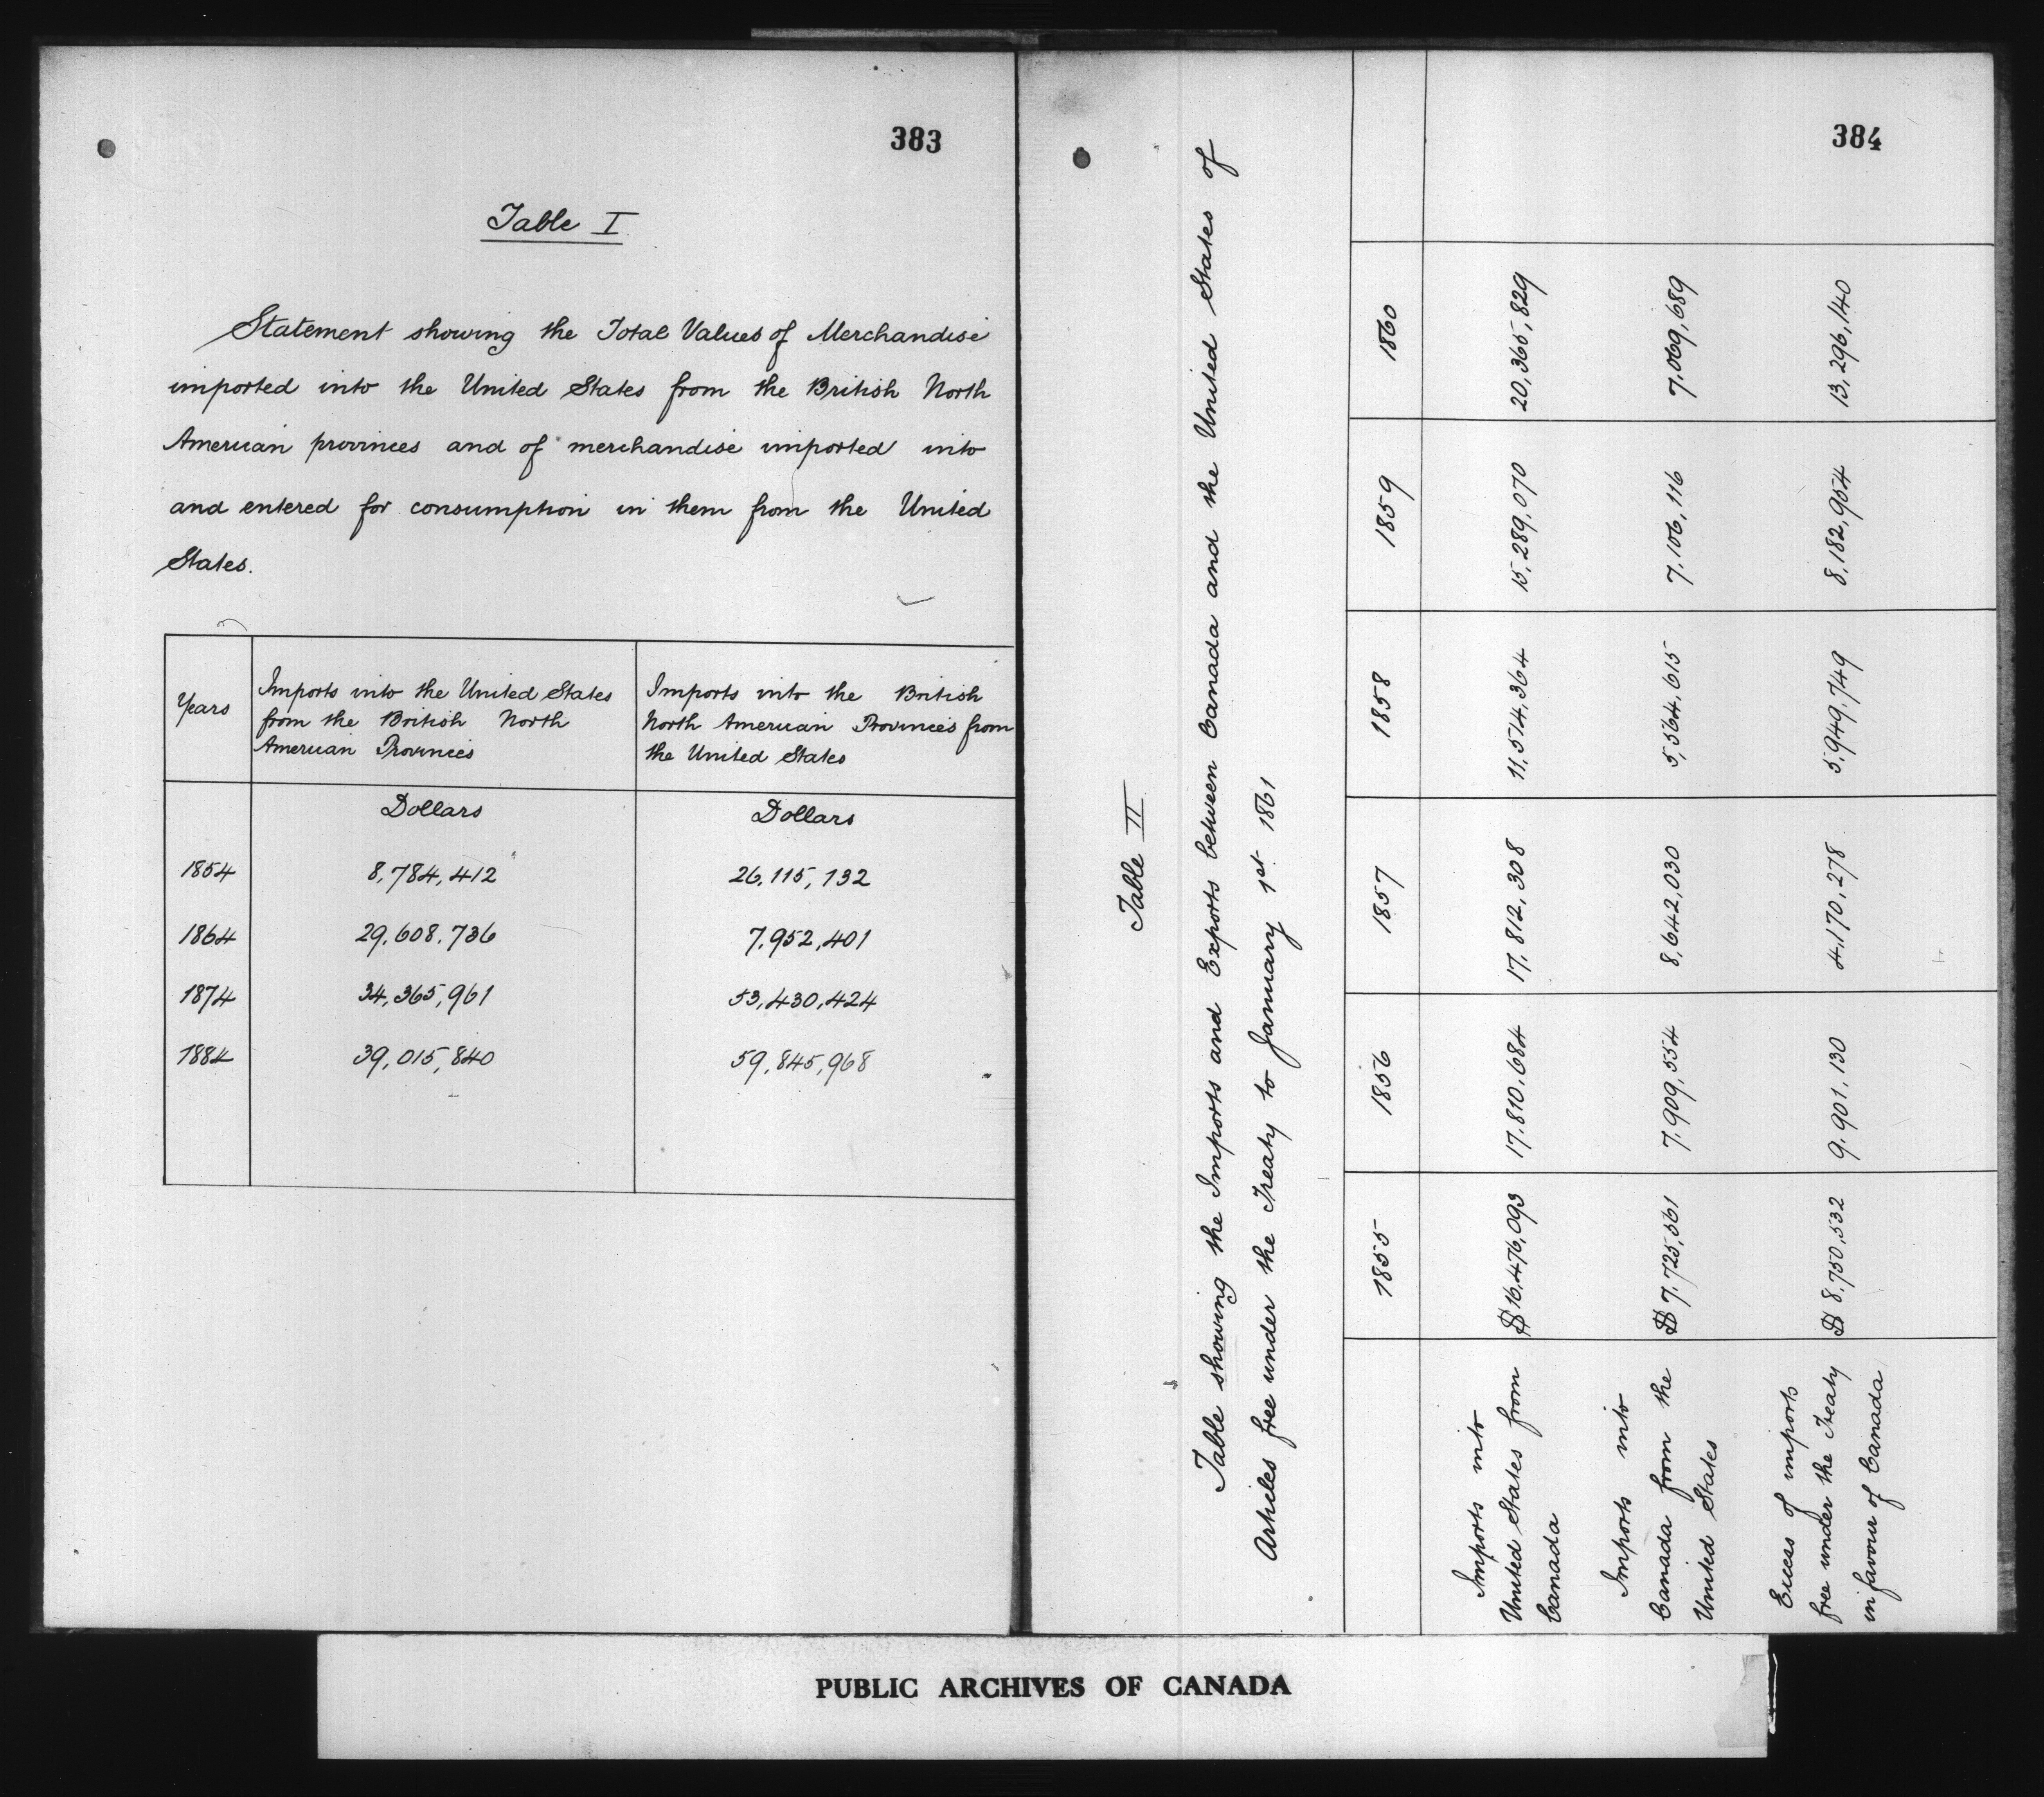 383
Table I
Statement showing the Total Values of Merchandise
imported into the United States from the British North
American provinces and of merchandise imported into
and entered for consumption in them from the United
States.
Years | Imports into the United States from the British North American Provinces | Imports into the British North American Provinces from the United States
Dollars | Dollars
1854 | 8,784,412 | 26,115,132
1864 | 29,608,736 | 7,952,401
1874 | 34,365,961 | 53,430,424
1884 | 39,015,840 | 59,845,968
384
Table II
Table showing the Imports and Exports between Canada and the United States of
Articles free under the Treaty to January 1st 1861
1855 | 1856 | 1857 | 1858 | 1859 | 1860
Imports into United States from Canada | $16,476,093 | 17,810,684 | 17,812,308 | 11,514,364 | 15,289,070 | 20,365,829
Imports into Canada from the United States | $7,725,561 | 7,909,554 | 8,642,030 | 5,564,615 | 7,106,116 | 7,069,689
Excess of imports free under the Treaty in favour of Canada | $8,750,532 | 9,901,130 | 4,170,278 | 5,949,749 | 8,182,954 | 13,296,140
PUBLIC ARCHIVES OF CANADA